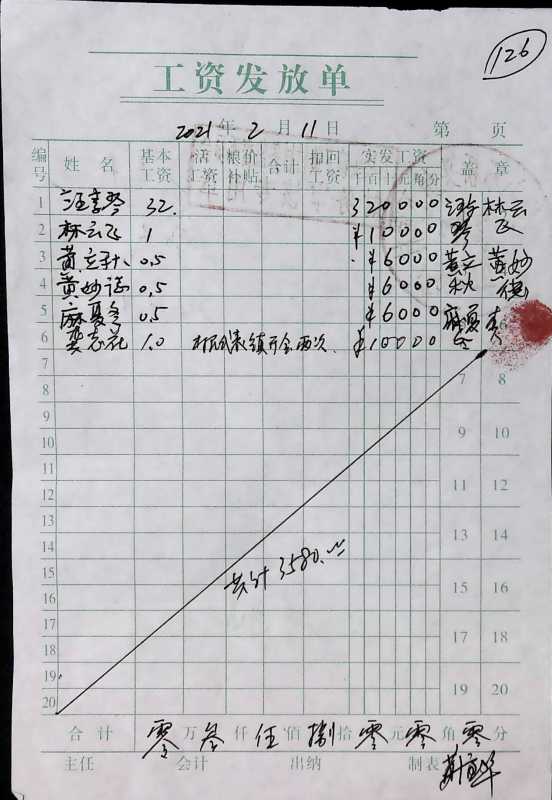 126
工资发放单
2021年2月11日 第 页
编号 姓名 基本工资 活工资 粮价补贴 合计 扣回工资 实发工资 千百十元角分 盖章
1 汪喜琴 32. 320000 林云
2 林云飞 1 ¥10000 琴 飞
3 黄立秋 0.5 ¥6000 黄立 黄妙
4 黄妙 0.5 ¥6000 秋
5 麻夏冬 0.5 ¥6000 麻夏
6 1.0 镇开会两次. ¥10000 冬
7 7 8
8
9 9 10
10
11 11 12
12
13 13 14
14
15 共计3580.00 15 16
16
17 17 18
18
19 19 20
20
合计 零万叁仟伍佰捌拾零元零角零分
主任 会计 出纳 制表